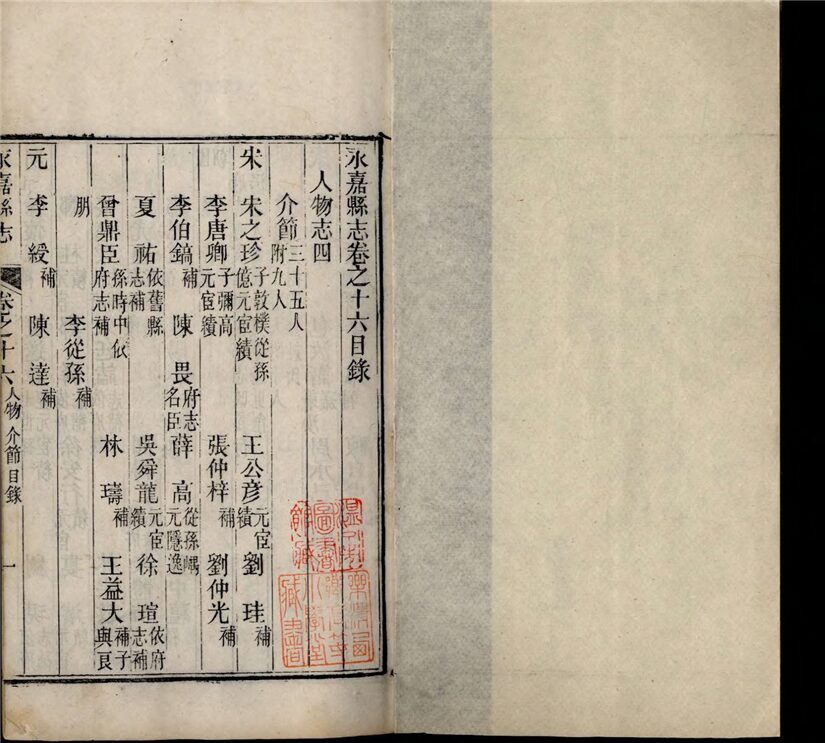 永嘉縣志卷之十六目錄
人物志四
介節三十五人附九人
宋 宋之珍子敦樸從孫億元宦績 王公彦元宦績 劉 珪補
李唐卿子彌高元宦績 張仲梓補 劉仲光補
李伯鎬補 陳 畏府志名臣 薛 高從孫嵎元隱逸
夏 祐依舊縣志補 吳舜龍元宦績 徐 瑄依府志補
曾鼎臣孫時中依府志補 林 璹補 王益大補子與良
朋 李從孫補
元 李 綬補 陳 達補
永嘉縣志 卷之十六 人物 介節目錄 一